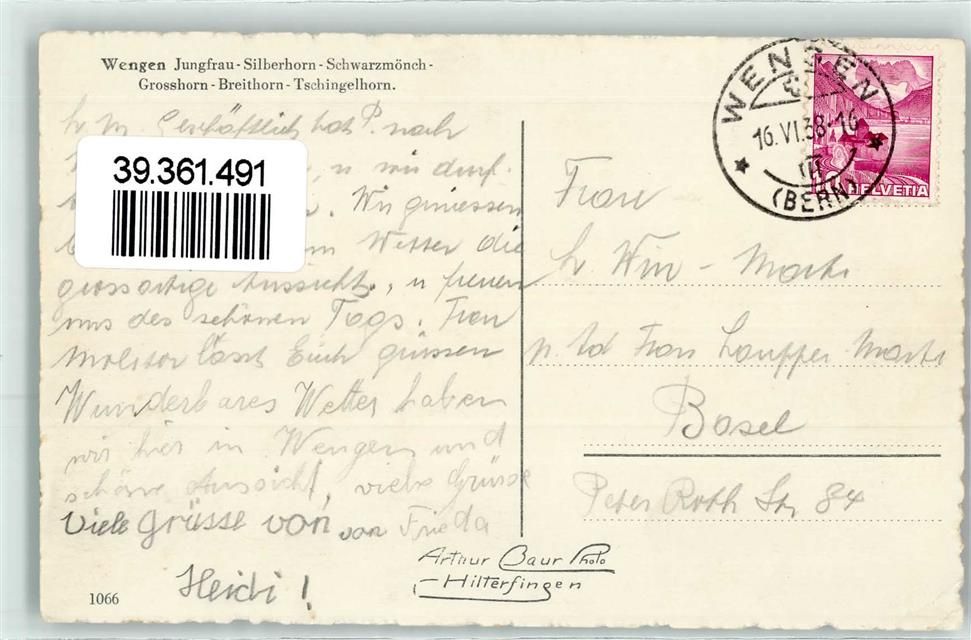 Wengen Jungfrau - Silberhorn - Schwarzmönch -
Grosshorn - Breithorn - Tschingelhorn.
WENGEN
16.VI.38-16
(BERN)
HELVETIA
39.361.491
L. M. Geschäftlich hat P. nach
u wir durf-
Wir geniessen
Wetter die
grossartige Aussicht, u freuen
uns des schönen Tags. Frau
Molitor lässt Euch grüssen
Wunderbares Wetter haben
wir hier in Wengen und
schöne Aussicht, viele Grüsse
von Frieda
Viele Grüsse von
Heidi!
Frau
Marti
Frau Marti
Basel
Peter Roth Str 84
Arthur Baur Photo
Hilterfingen
1066